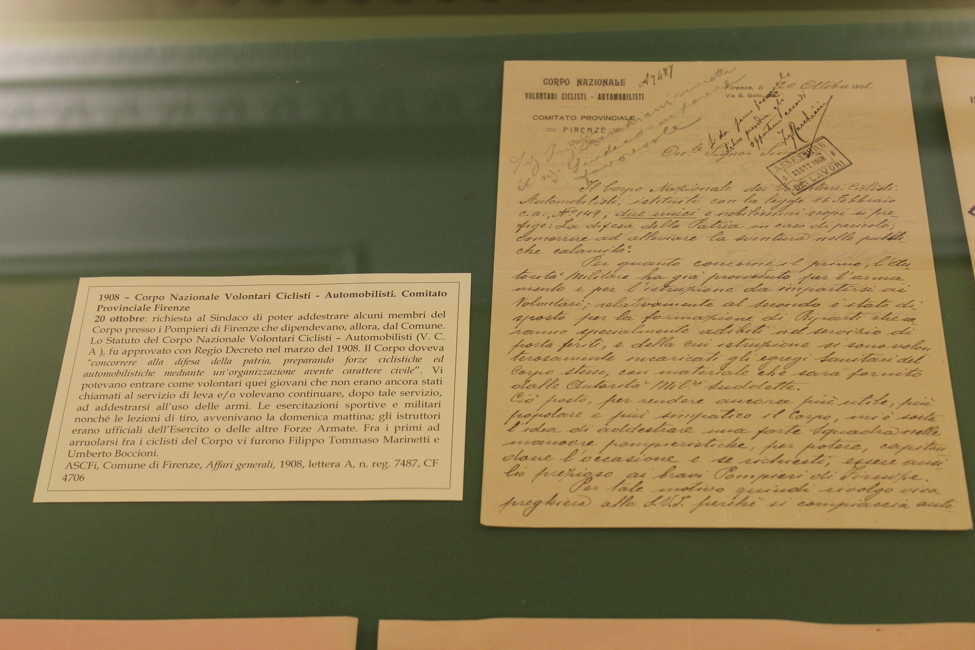 1908 – Corpo Nazionale Volontari Ciclisti - Automobilisti. Comitato
Provinciale Firenze
20 ottobre: richiesta al Sindaco di poter addestrare alcuni membri del
Corpo presso i Pompieri di Firenze che dipendevano, allora, dal Comune.
Lo Statuto del Corpo Nazionale Volontari Ciclisti - Automobilisti (V. C.
A ), fu approvato con Regio Decreto nel marzo del 1908. Il Corpo doveva
"concorrere alla difesa della patria, preparando forze ciclistiche ed
automobilistiche mediante un'organizzazione avente carattere civile". Vi
potevano entrare come volontari quei giovani che non erano ancora stati
chiamati al servizio di leva e/o volevano continuare, dopo tale servizio,
ad addestrarsi all'uso delle armi. Le esercitazioni sportive e militari
nonché le lezioni di tiro, avvenivano la domenica mattina; gli istruttori
erano ufficiali dell'Esercito o delle altre Forze Armate. Fra i primi ad
arruolarsi fra i ciclisti del Corpo vi furono Filippo Tommaso Marinetti e
Umberto Boccioni.
ASCFi, Comune di Firenze, Affari generali, 1908, lettera A, n. reg. 7487, CF
4706
CORPO NAZIONALE
VOLONTARI CICLISTI - AUTOMOBILISTI
COMITATO PROVINCIALE
FIRENZE
A 7487
Firenze, 20 Ottobre 1908.
LAVORI
Il Corpo Nazionale dei Volontari Ciclisti
Automobilisti, istituito con la legge 16 Febbraio
c.a., N° 149, due unici e nobilissimi scopi si pre
figge: La difesa della Patria in caso di pericolo,
concorrere ad alleviare la sventura nelle pubbli
che calamità.
Per quanto concerne il primo, l'Au
torità Militare ha già provveduto per l'arma
mento e per l'istruzione da impartirsi ai
Volontari; relativamente al secondo è stato di
sposto per la formazione di Riparti che sa
ranno specialmente adibiti nel servizio di
porta feriti, e della cui istruzione si sono volon
terosamente incaricati gli Egregi Sanitari del
Corpo stesso, con materiale che sarà fornito
dalle Autorità Mil.ri suddette.
Ciò posto, per rendere ancora più utile, più
popolare e più simpatico il Corpo, mi è sorta
l'idea di addestrare una forte squadra nelle
manovre pompieristiche, per potere, capitan
done l'occasione e se richiesti, essere ausi
lio prezioso ai bravi Pompieri di Firenze.
Per tale motivo quindi rivolgo viva
preghiera alla S.V.I. perchè si compiaccia auto